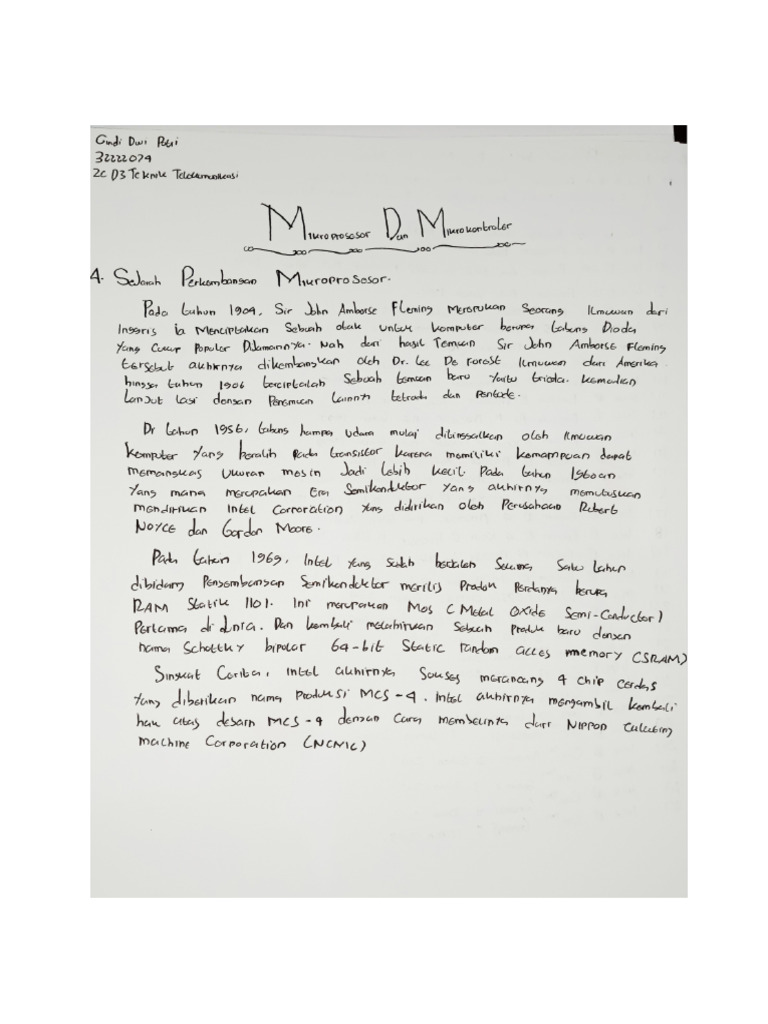 Cindi Dwi Putri
32222074
2C D3 Teknik Telekomunikasi
Mikroprosesor Dan Mikrokontroler
4. Sejarah Perkembangan Mikroprosesor.
Pada tahun 1904, Sir John Amborse Fleming Merupakan Seorang Ilmuwan dari
Inggris ia Menciptakan Sebuah otak untuk komputer berupa tabung Dioda
yang Cukup Populer Dizamannya. Nah dari hasil Temuan Sir John Amborse Fleming
tersebut akhirnya dikembangkan oleh Dr. Lee De Forest Ilmuwan dari Amerika
hingga tahun 1906 terciptalah Sebuah temuan baru yaitu trioda. kemudian
lanjut lagi dengan Penemuan lainnya tetroda dan Pentode.
Di tahun 1956, tabung hampa udara mulai ditinggalkan oleh Ilmuwan
komputer yang beralih pada transistor karena memiliki kemampuan dapat
memangkas Ukuran mesin Jadi lebih kecil. Pada tahun 1960an
yang mana merupakan Era Semikonduktor yang akhirnya memutuskan
mendirikan Intel Corporation yang didirikan oleh Perusahaan Robert
NOYCE dan Gordon Moore.
Pada tahun 1969, Intel yang Sudah berjalan Selama Satu tahun
dibidang Pengembangan Semikonduktor merilis Produk Perdanya berupa
RAM Statik 1101. Ini merupakan Mos (Metal OXIDE Semi-Conductor)
Pertama di dunia. Dan kembali melahirkan Sebuah Produk baru dengan
nama Schottky bipolar 64-bit Static random acces memory (SRAM)
Singkat Cerita, Intel akhirnya Sukses merancang 4 chip cerdas
yang diberikan nama Produksi MCS-4. Intel akhirnya mengambil kembali
hak atas desain MCS-4 dengan Cara membelinya dari NIPPON Calculating
machine Corporation (NCMC)